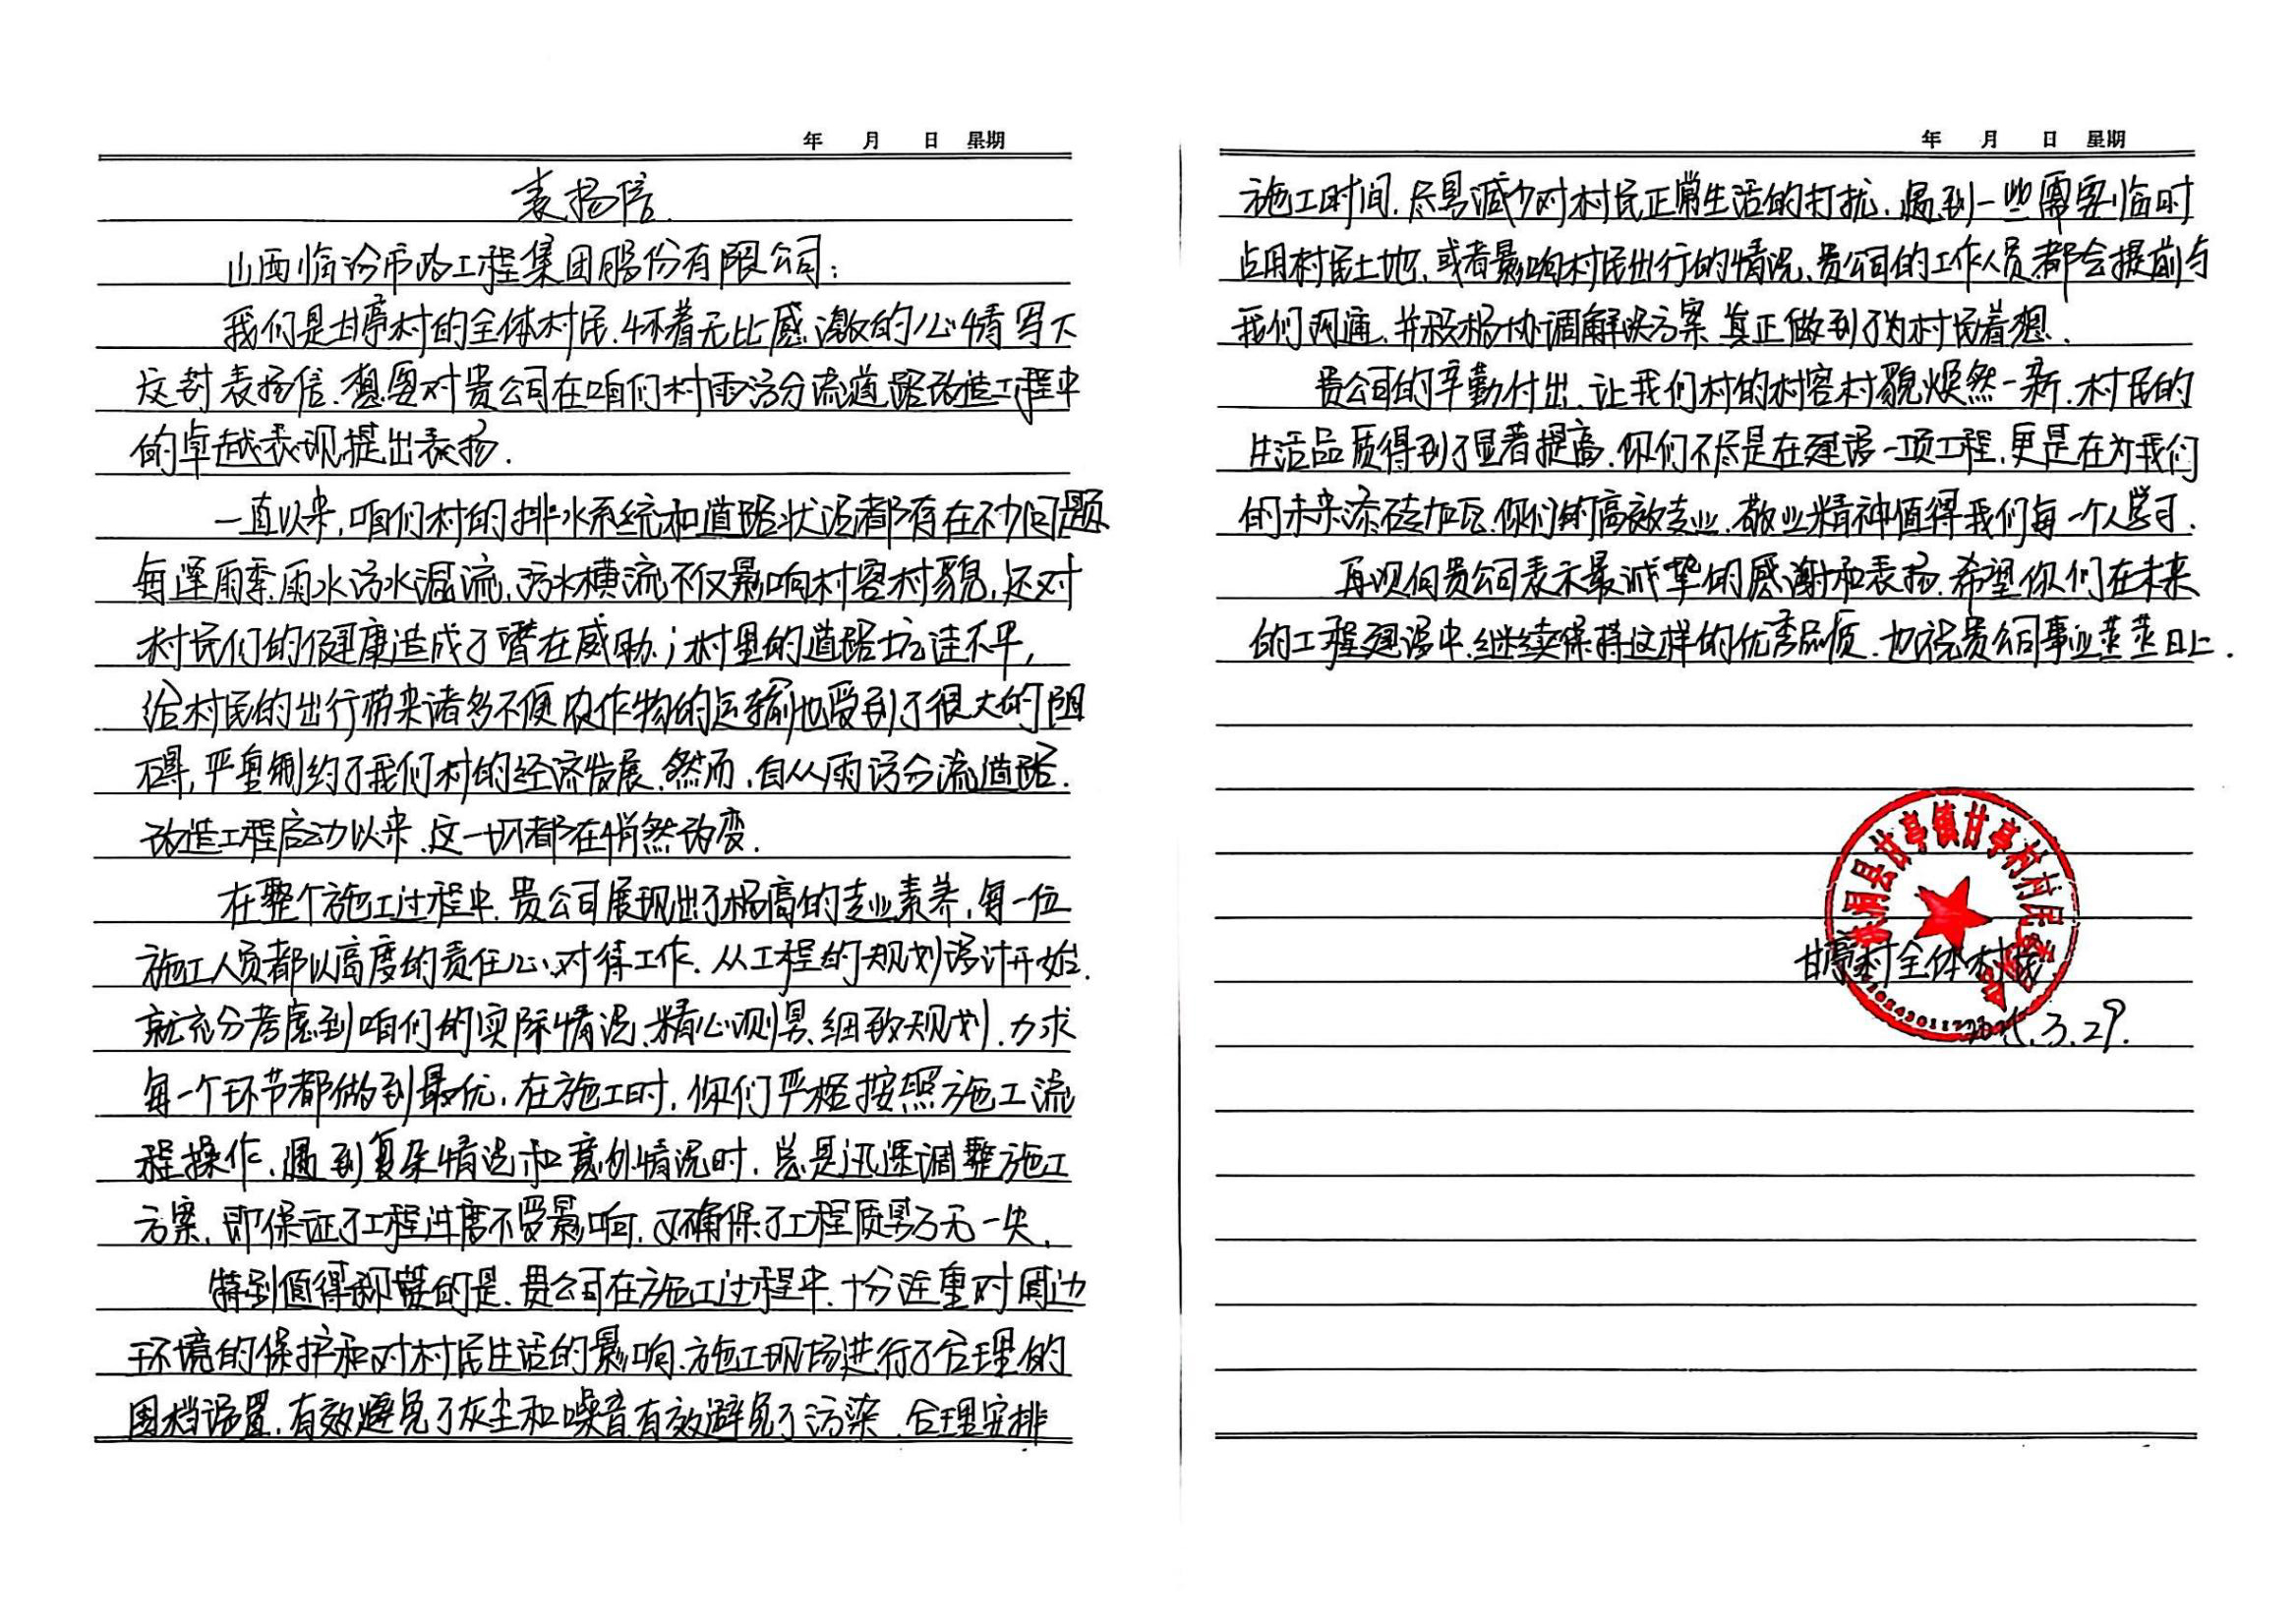 年 月 日 星期
表扬信.
山西临汾市政工程集团股份有限公司:
我们是甘亭村的全体村民,怀着无比感激的心情写下
这封表扬信.想要对贵公司在咱们村雨污分流道路改造工程中
的卓越表现提出表扬.
一直以来,咱们村的排水系统和道路状况都存在不少问题
每逢雨季,雨水污水混流,污水横流不仅影响村容村貌,还对
村民们的健康造成了潜在威胁;村里的道路坑洼不平,
给村民的出行带来诸多不便,农作物的运输也受到了很大的阻
碍,严重制约了我们村的经济发展.然而,自从雨污分流道路.
改造工程启动以来,这一切都在悄然改变.
在整个施工过程中,贵公司展现出了极高的专业素养,每一位
施工人员都以高度的责任心对待工作.从工程的规划设计开始.
就充分考虑到咱们的实际情况,精心测量,细致规划,力求
每一个环节都做到最优,在施工时,你们严格按照施工流
程操作,遇到复杂情况和意外情况时,总是迅速调整施工
方案,即保证了工程进度不受影响,又确保了工程质量万无一失.
特别值得称赞的是,贵公司在施工过程中,十分注重对周边
环境的保护和对村民生活的影响.施工现场进行了合理的
围挡设置,有效避免了灰尘和噪音有效避免了污染,合理安排
年 月 日 星期
施工时间,尽量减少对村民正常生活的打扰,遇到一些需要临时
占用村民土地,或者影响村民出行的情况,贵公司的工作人员都会提前与
我们沟通,并积极协调解决方案,真正做到了为村民着想.
贵公司的辛勤付出,让我们村的村容村貌焕然一新,村民的
生活品质得到了显著提高.你们不仅是在建设一项工程,更是在为我们
的未来添砖加瓦.你们的高效专业,敬业精神值得我们每一个人学习.
再次向贵公司表示最诚挚的感谢和表扬,希望你们在未来
的工程建设中,继续保持这样的优秀品质.也祝贵公司事业蒸蒸日上.
洪洞县甘亭镇甘亭村村民委员会
甘亭村全体村民
2025.3.29.